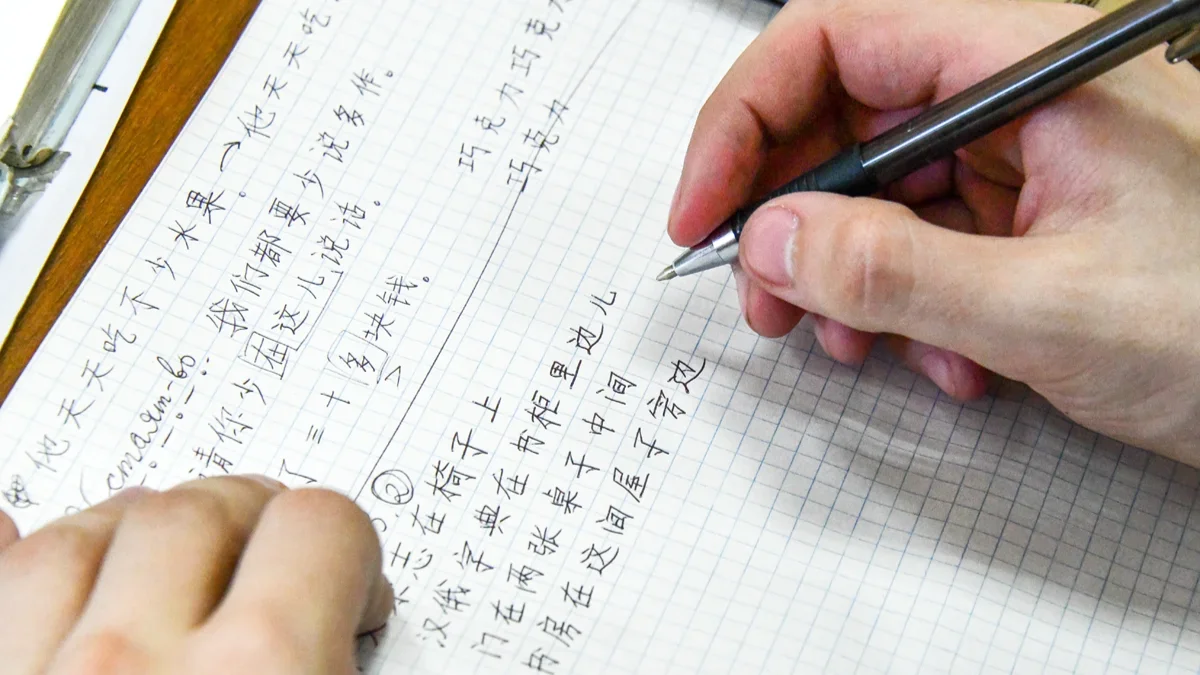 他天天吃不少水果。→他天天吃
我们都要少说多作。
请你少在这儿说话。
了三十多块钱。
巧克力巧克力
巧克力
②
在椅子上
汉俄字典在书柜里边儿
门在两张桌子中间
书房在这间屋子旁边